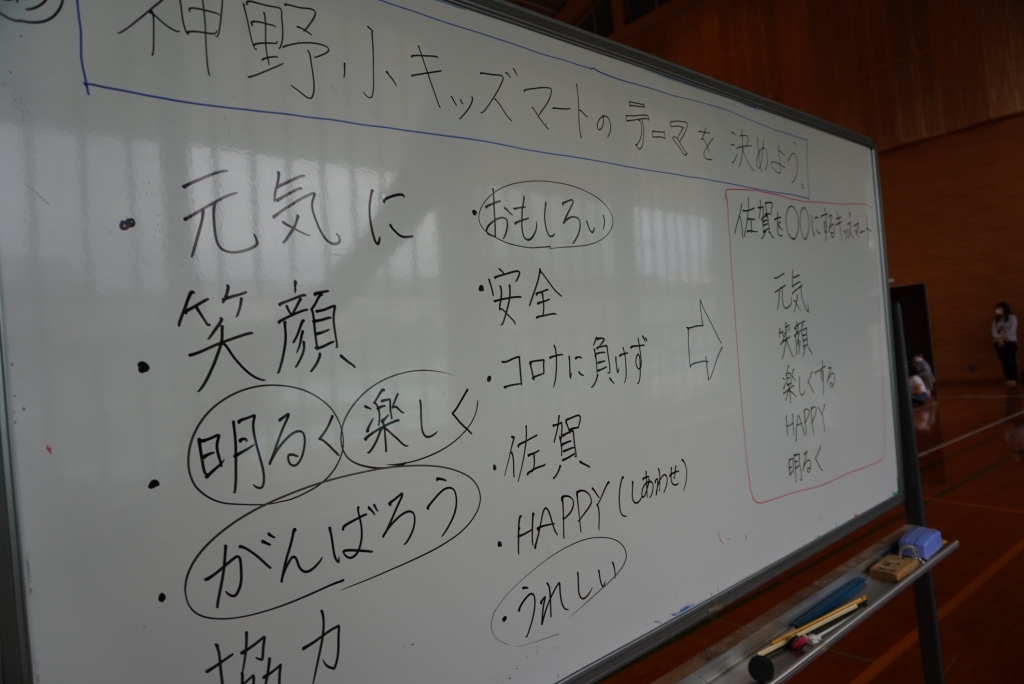 神野小キッズマートのテーマを決めよう。
・元気に
・笑顔
・明るく 楽しく
・がんばろう
協力
・おもしろい
・安全
・コロナに負けず
・佐賀
・HAPPY(しあわせ)
・うれしい
佐賀を○○にするキッズマート
元気
笑顔
楽しくする
HAPPY
明るく